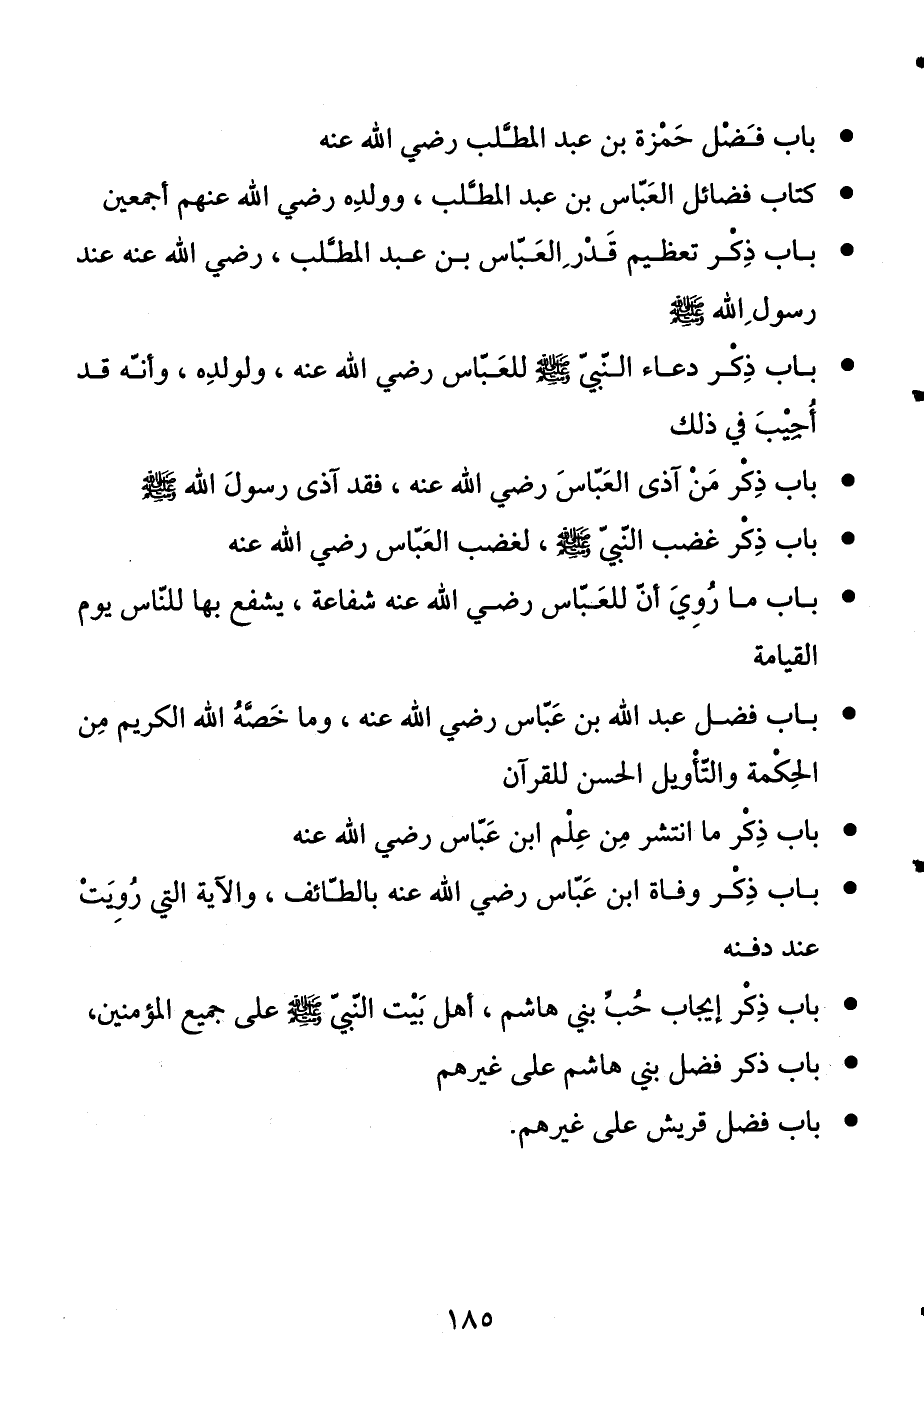 ● باب فَضْل حَمْزة بن عبد المطَّلب رضي الله عنه
● كتاب فضائل العَبّاس بن عبد المطَّلب ، وولدِه رضي الله عنهم أجمعين
● باب ذِكْر تعظيم قَدْرِ العَبّاس بن عبد المطَّلب ، رضي الله عنه عند
رسولِ الله ﷺ
● باب ذِكْر دعاء النّبيّ ﷺ للعَبّاس رضي الله عنه ، ولولدِه ، وأنّه قد
أُجِيْبَ في ذلك
● باب ذِكْر مَنْ آذى العَبّاسَ رضي الله عنه ، فقد آذى رسولَ الله ﷺ
● باب ذِكْر غضب النّبيّ ﷺ ، لغضب العَبّاس رضي الله عنه
● باب ما رُوِيَ أنّ للعَبّاس رضي الله عنه شفاعة ، يشفع بها للنّاس يوم
القيامة
● باب فضل عبد الله بن عَبّاس رضي الله عنه ، وما خَصَّهُ الله الكريم مِن
الحِكْمة والتّأْويل الحسن للقرآن
● باب ذِكْر ما انتشر مِن عِلْم ابن عَبّاس رضي الله عنه
● باب ذِكْر وفاة ابن عَبّاس رضي الله عنه بالطّائف ، والآية التي رُوِيَتْ
عند دفنه
● باب ذِكْر إيجاب حُبِّ بني هاشم ، أهل بَيْت النّبيّ ﷺ على جميع المؤمنين،
● باب ذكر فضل بني هاشم على غيرهم
● باب فضل قريش على غيرهم.
١٨٥